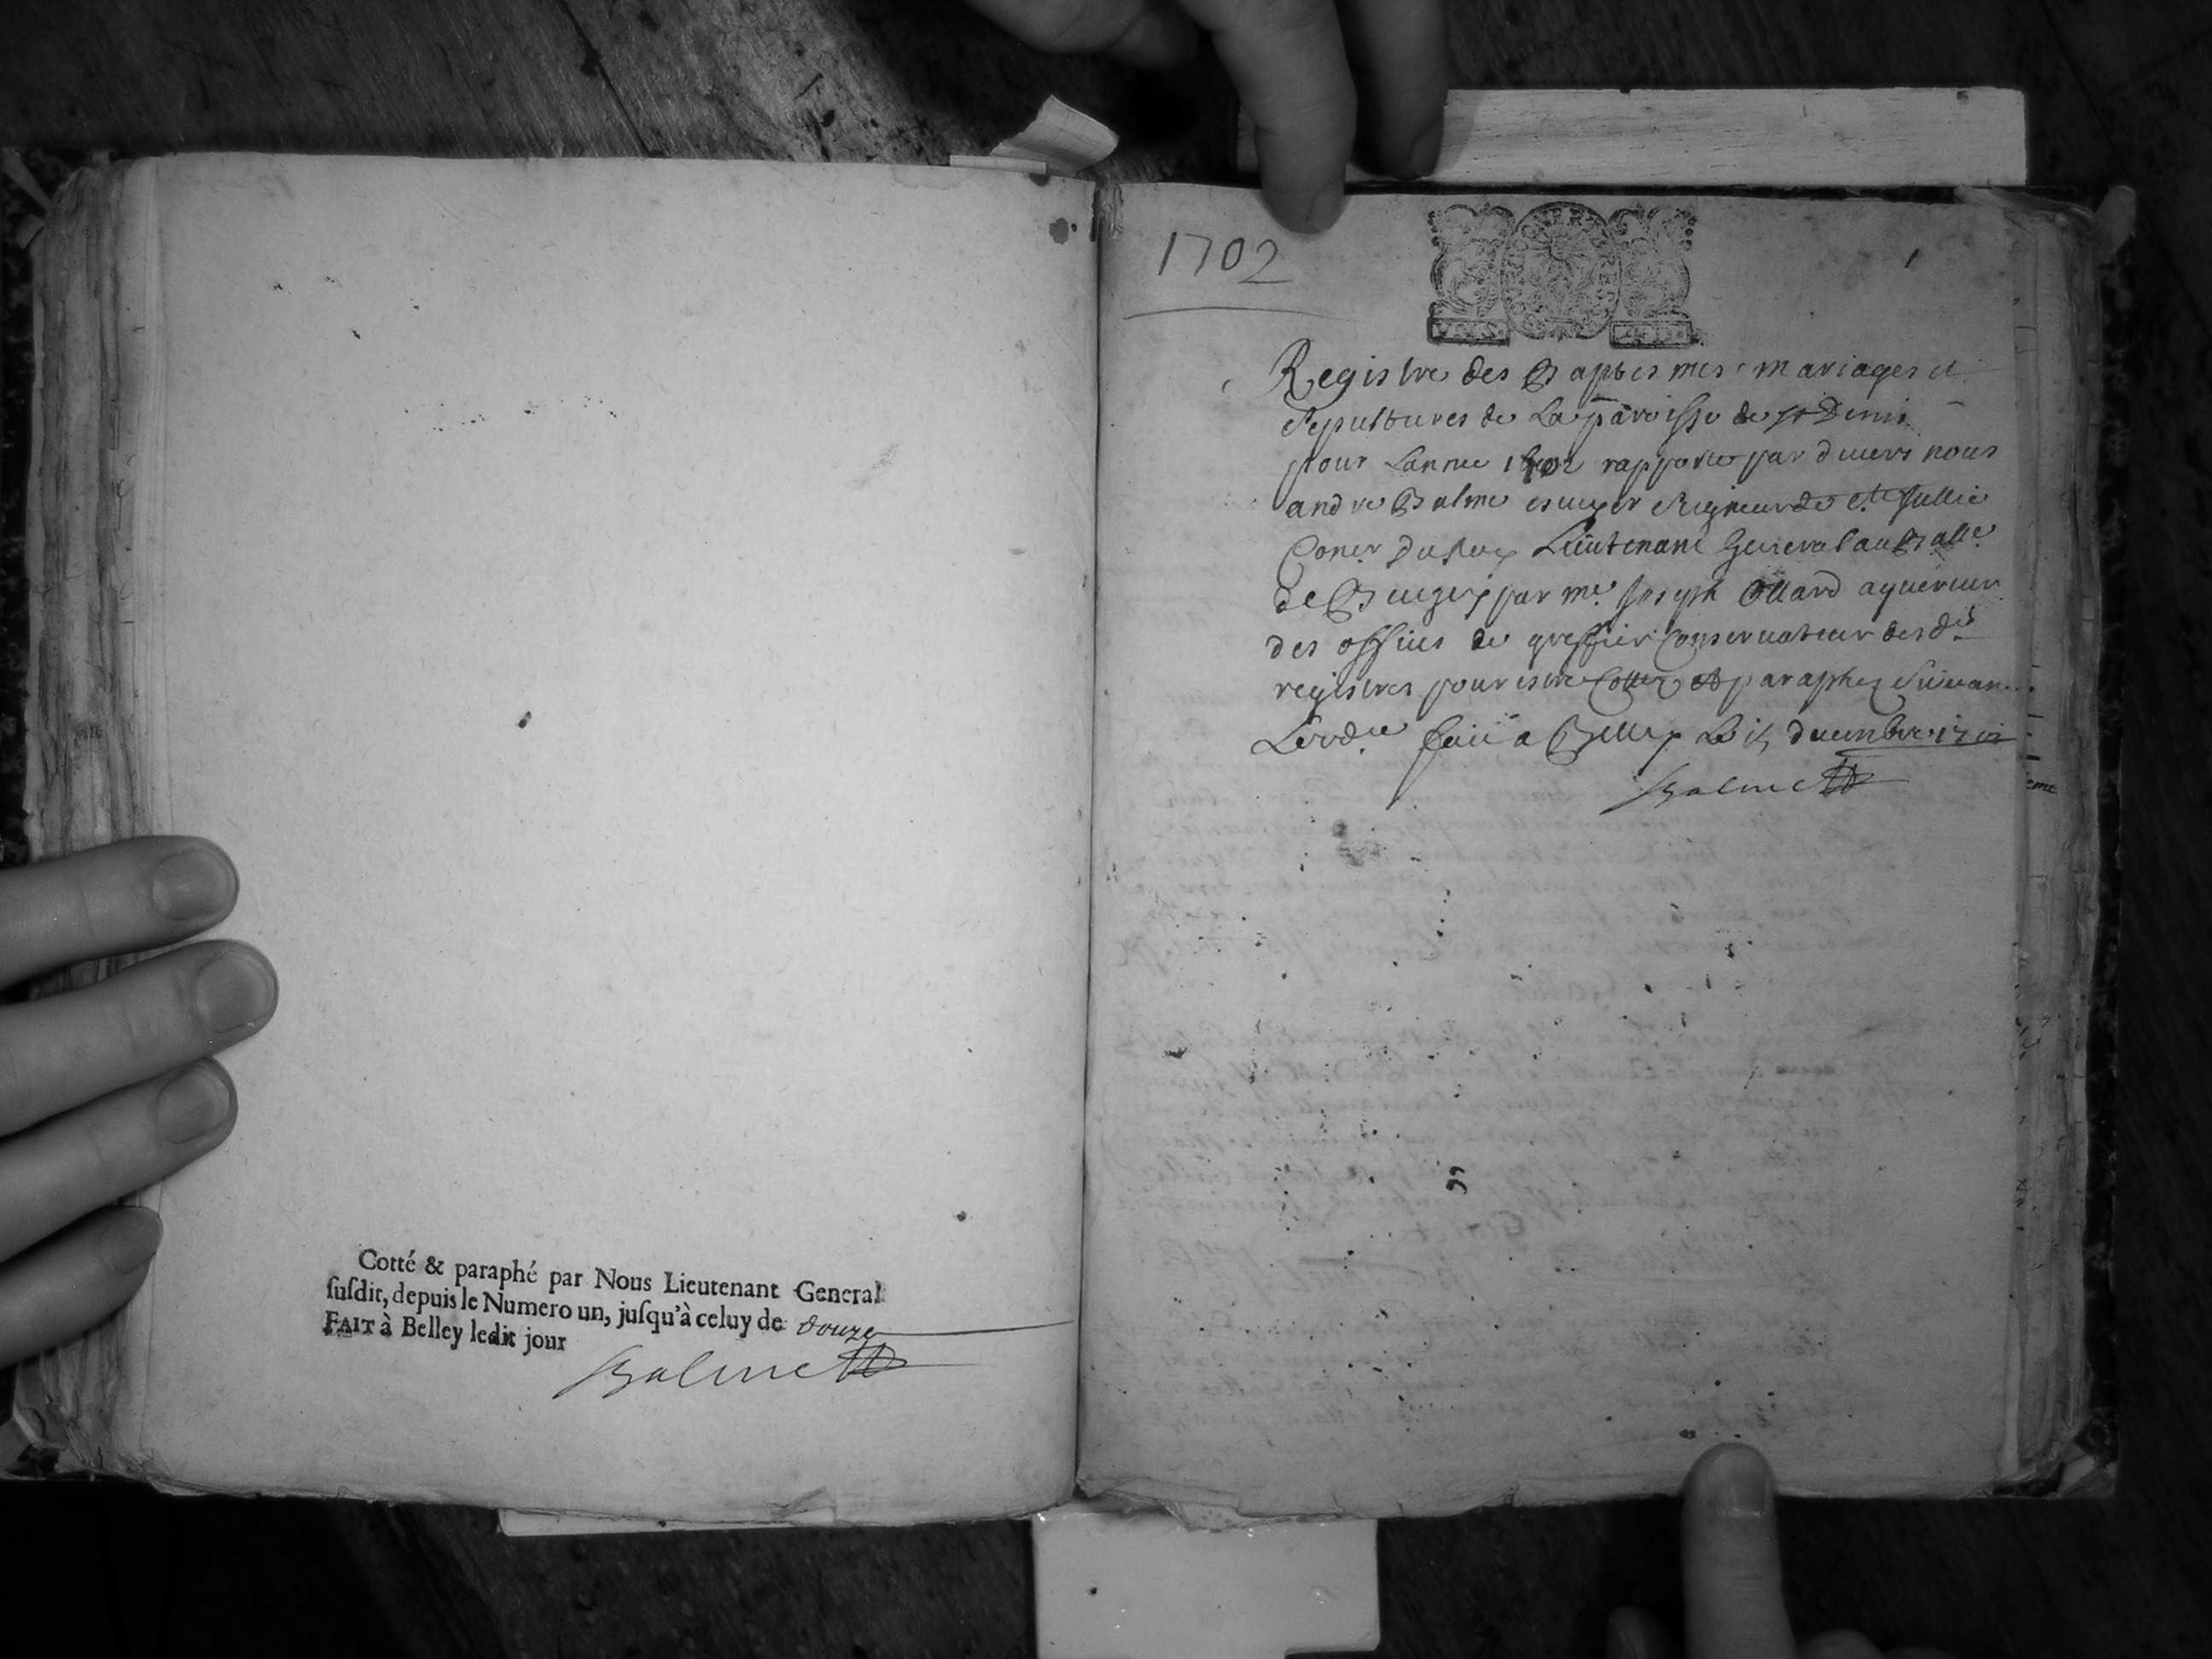 Cotté & paraphé par Nous Lieutenant General
ſuſdit, depuis le Numero un, juſqu'à celuy de douze
FAIT à Belley ledit jour
Balme
1702
1
Registre des Baptesmes mariages et
Sepultures de La paroisse de St Denis
pour Lannee 1702 rapporté par devers nous
andre Balme escuyer Seigneur de Ste Jullie
Coner du Roy Lieutenant General au Balle
de Bugey par me Joseph Ollard aquereur
des offices de greffier Conservateur desds
registres pour estre Cottez et paraphez Suivan
Lordce faict a Belley Le decembre
Balme